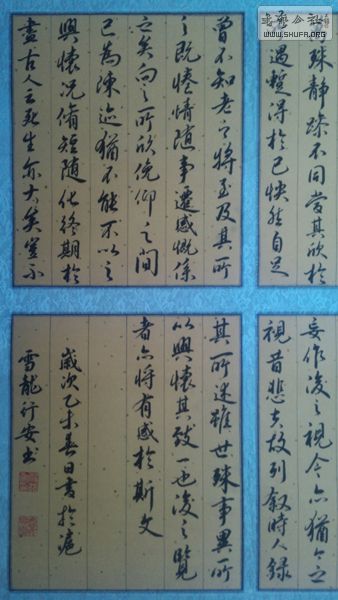 殊静躁不同當其欣於
遇暫得於己快然自足
曾不知老之將至及其所
之既惓情隨事遷感慨係
之矣向之所欣俛仰之間
已為陳迹猶不能不以之
興懷況脩短隨化終期於
盡古人云死生亦大矣豈不
妄作後之視今亦猶今之
視昔悲夫故列叙時人錄
其所述雖世殊事異所
以興懷其致一也後之覽
者亦將有感於斯文
歲次乙未春日書於滬
雪龍行安書